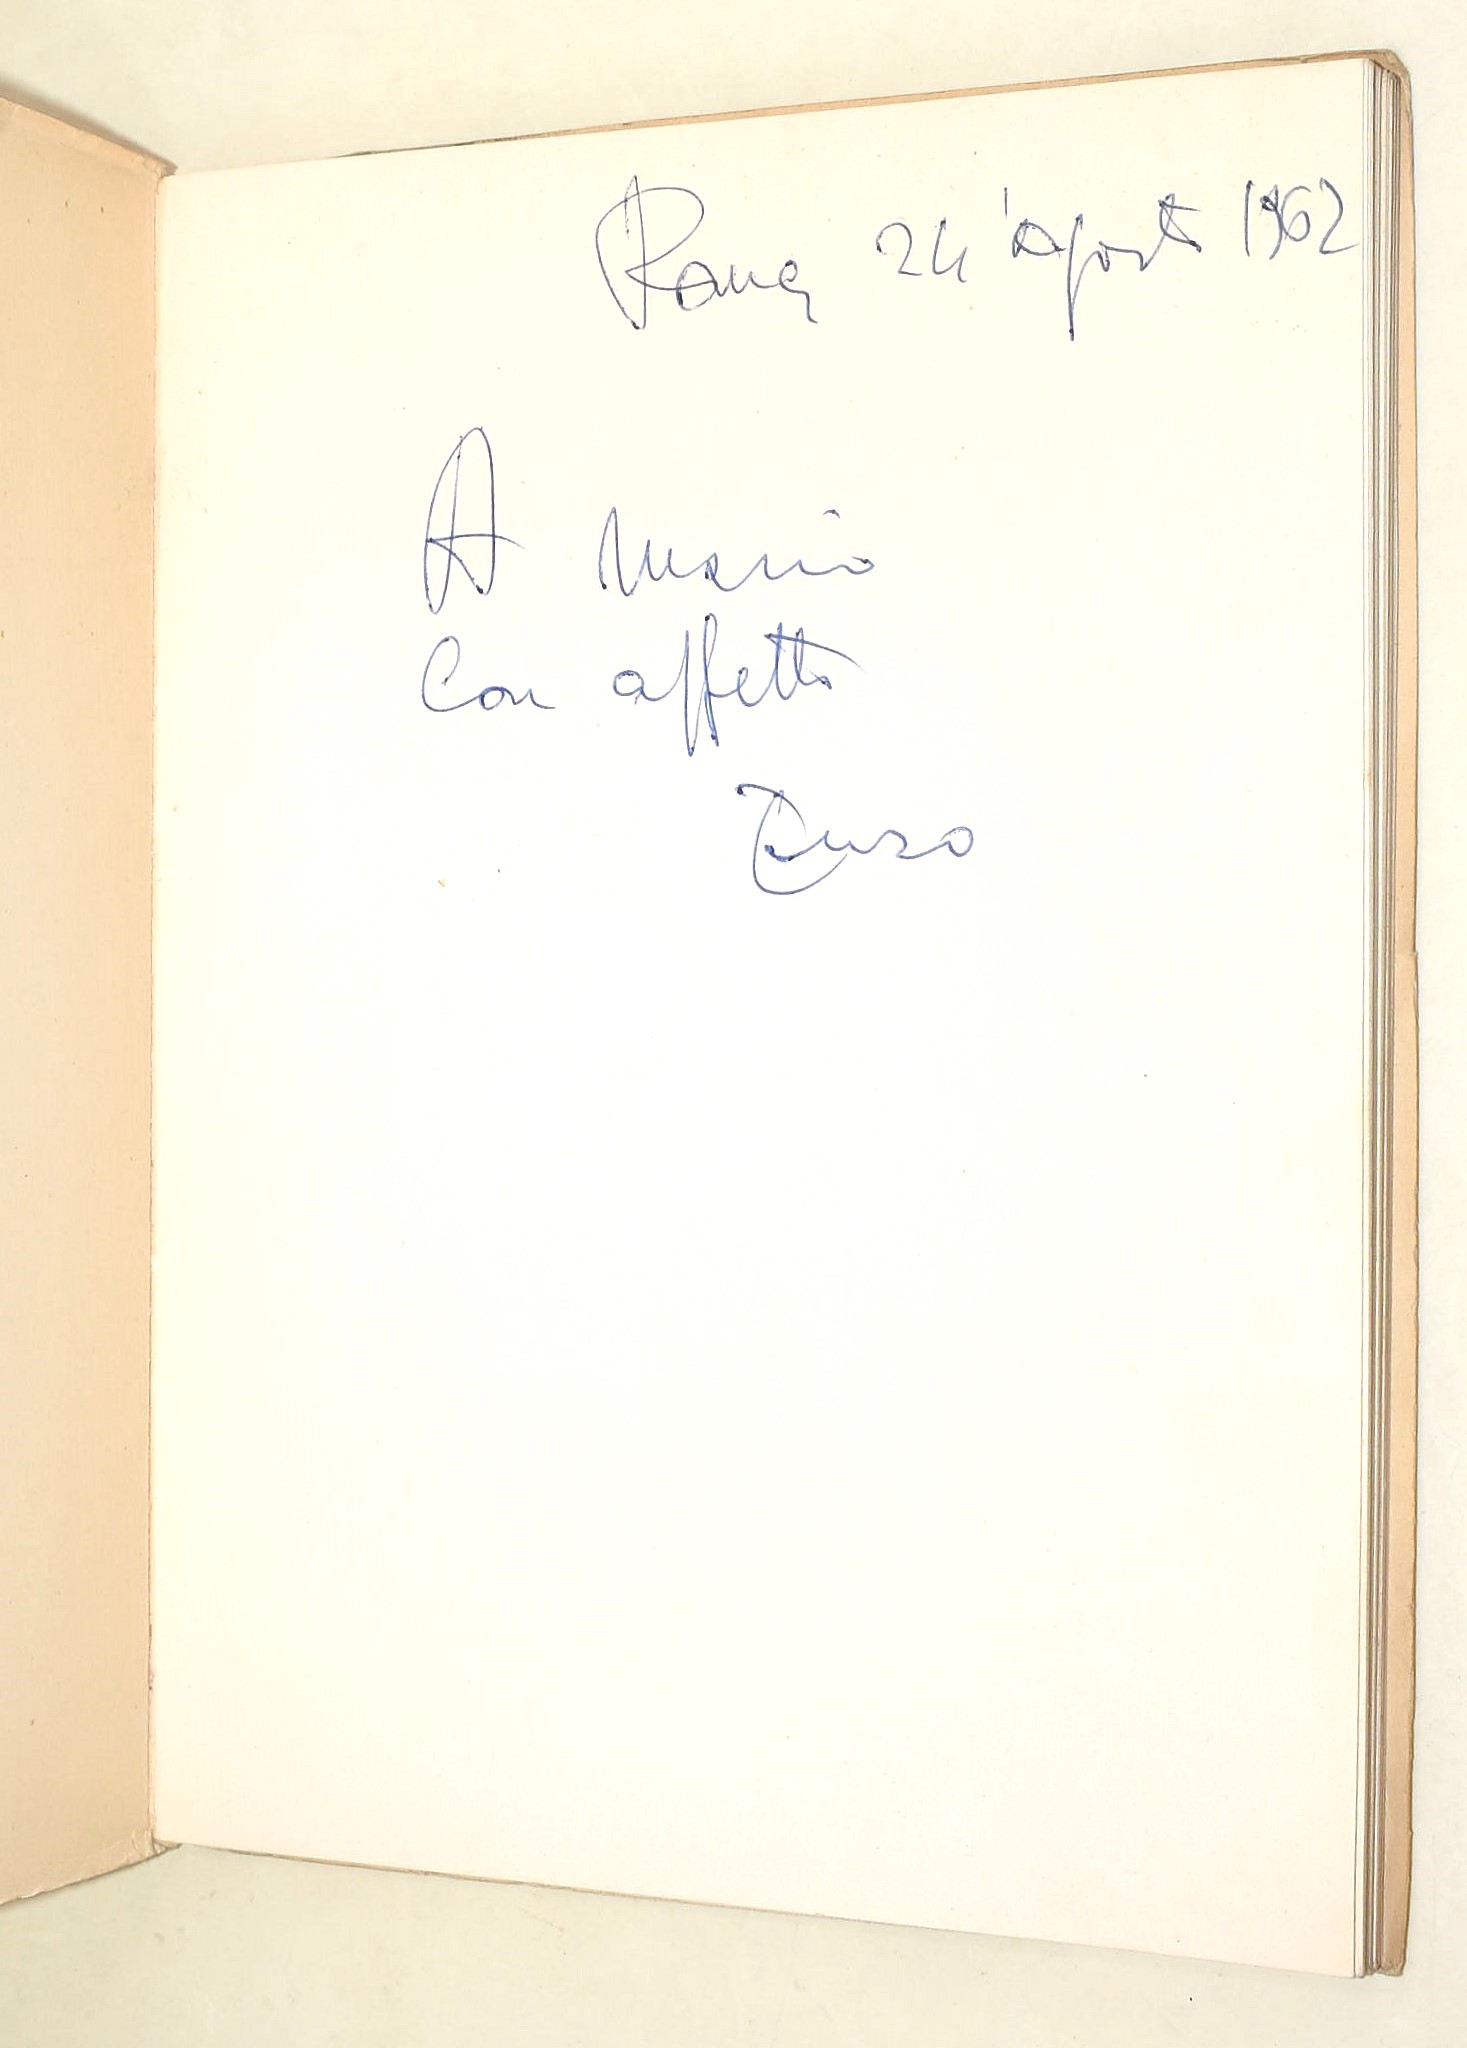 Roma 24 agosto 1962
A Mario
Con affetto
Enzo